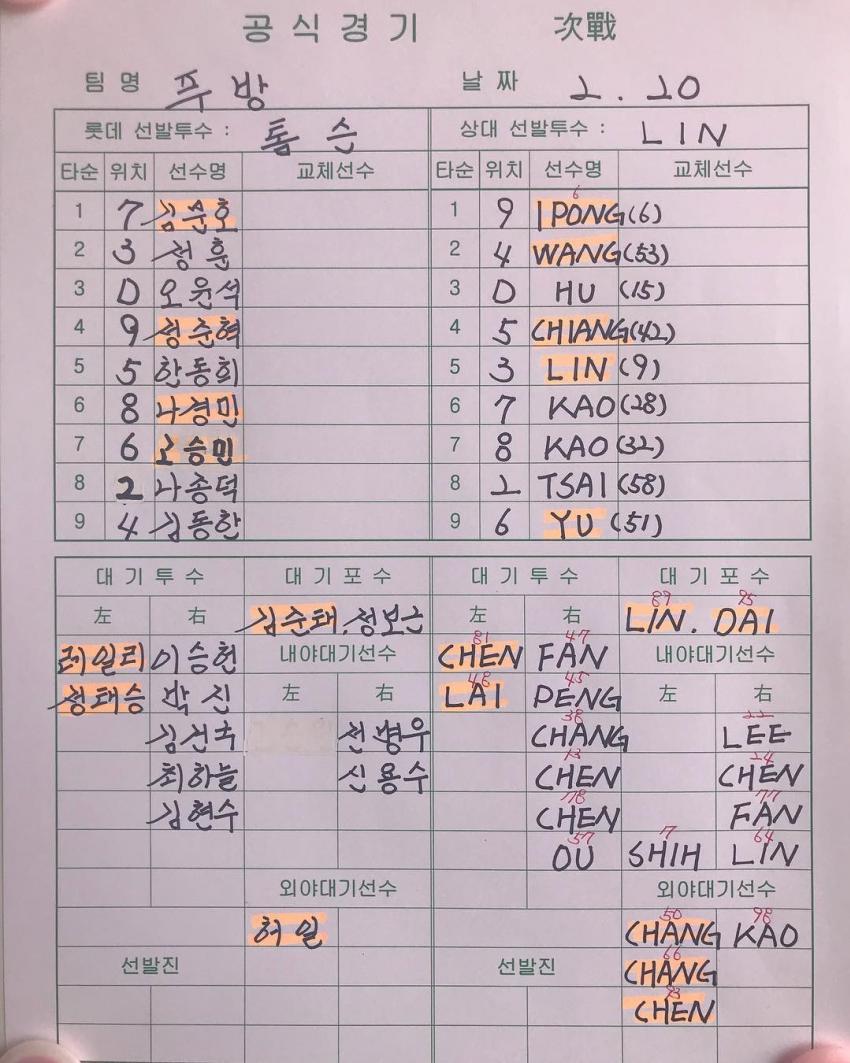 공식경기 次戰
팀명 푸방 날짜 2.20
롯데 선발투수 : 톰슨 상대 선발투수 : LIN
타순 위치 선수명 교체선수 타순 위치 선수명 교체선수
6
1 7 김준호 1 9 IPONG(6)
2 3 정훈 2 4 WANG(53)
3 D 오윤석 3 D HU (15)
4 9 정준혁 4 5 CHIANG(42)
5 5 한동희 5 3 LIN (9)
6 8 나경민 6 7 KAO(28)
7 6 고승민 7 8 KAO(32)
8 2 나종덕 8 2 TSAI(58)
9 4 김동한 9 6 YU (51)
대기투수 대기포수 대기투수 대기포수
89 95
左 右 김준태. 정보근 左 右 LIN. DAI
81 47
레일리 이승헌 내야대기선수 CHEN FAN 내야대기선수
48 45
정태승 박진 左 右 LAI PENG 左 右
38 22
김건국 전병우 CHANG LEE
13 24
최하늘 신용수 CHEN CHEN
78 77
김현수 CHEN FAN
57 7 64
OU SHIH LIN
외야대기선수 외야대기선수
50 98
허일 CHANG KAO
66
선발진 선발진 CHANG
93
CHEN